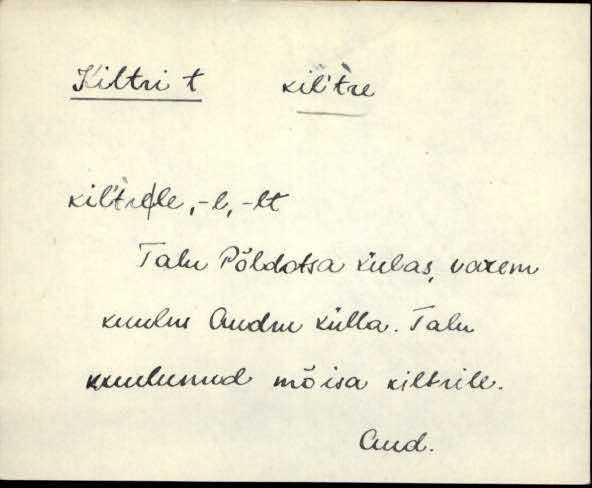 Kiltri t kil'tre
kil'tre|le, -l, -lt
Talu Põldotsa külas, varem
kuulus Audru külla. Talu
kuulunud mõisa kiltrile.
Aud.